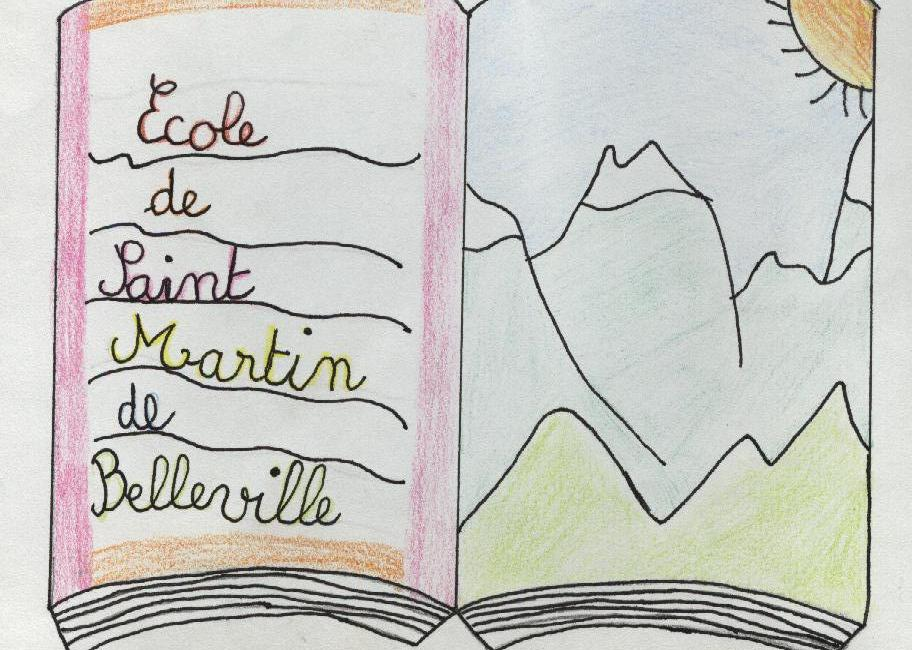 Ecole
de
Saint
Martin
de
Belleville